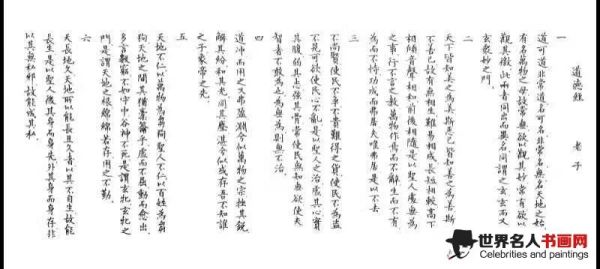 道德經 老子
一
道可道非常道名可名非常名無名天地之始
有名萬物之母故常無欲以觀其妙常有欲以
觀其徼此兩者同出而異名同謂之玄玄而又
玄衆妙之門
二
天下皆知美之為美斯惡已皆知善之為善斯
不善已故有無相生難易相成長短相較高下
相傾音聲相和前後相隨是以聖人處無為
之事行不言之教萬物作焉而不辭生而不有
為而不恃功成而弗居夫唯弗居是以不去
三
不尚賢使民不爭不貴難得之貨使民不為盜
不見可欲使民心不亂是以聖人之治虛其心實
其腹弱其志强其骨常使民無知無欲使夫
智者不敢為也為無為則無不治
四
道沖而用之又弗盈淵兮似萬物之宗挫其銳
解其紛和其光同其塵湛兮似或存吾不知誰
之子象帝之先
五
天地不仁以萬物為芻狗聖人不仁以百姓為芻
狗天地之間其猶橐籥乎虛而不屈動而愈出
多言數窮不如守中谷神不死是謂玄牝玄牝之
門是謂天地之根綿綿若存用之不勤
六
天長地久天地所以能長且久者以其不自生故能
長生是以聖人後其身而身先外其身而身存非
以其無私邪故能成其私
世界名人书画网
Celebrities and paintings